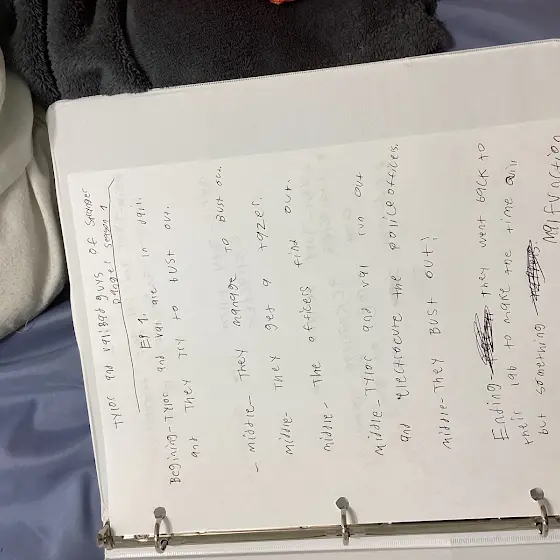 Tylor and val: Bad guys of Spender
Danger: Season 1
EP 1.
Begining - Tylor and val are in jail.
and They try to bust out.
- middle - They manage to Bust out.
middle - They get a tazer.
middle - The officers find out.
middle - Tylor and val run out
and electrocute the police officers.
middle - They Bust out!
Ending - they went back to
their lab to make the time quil
but something
malfunction